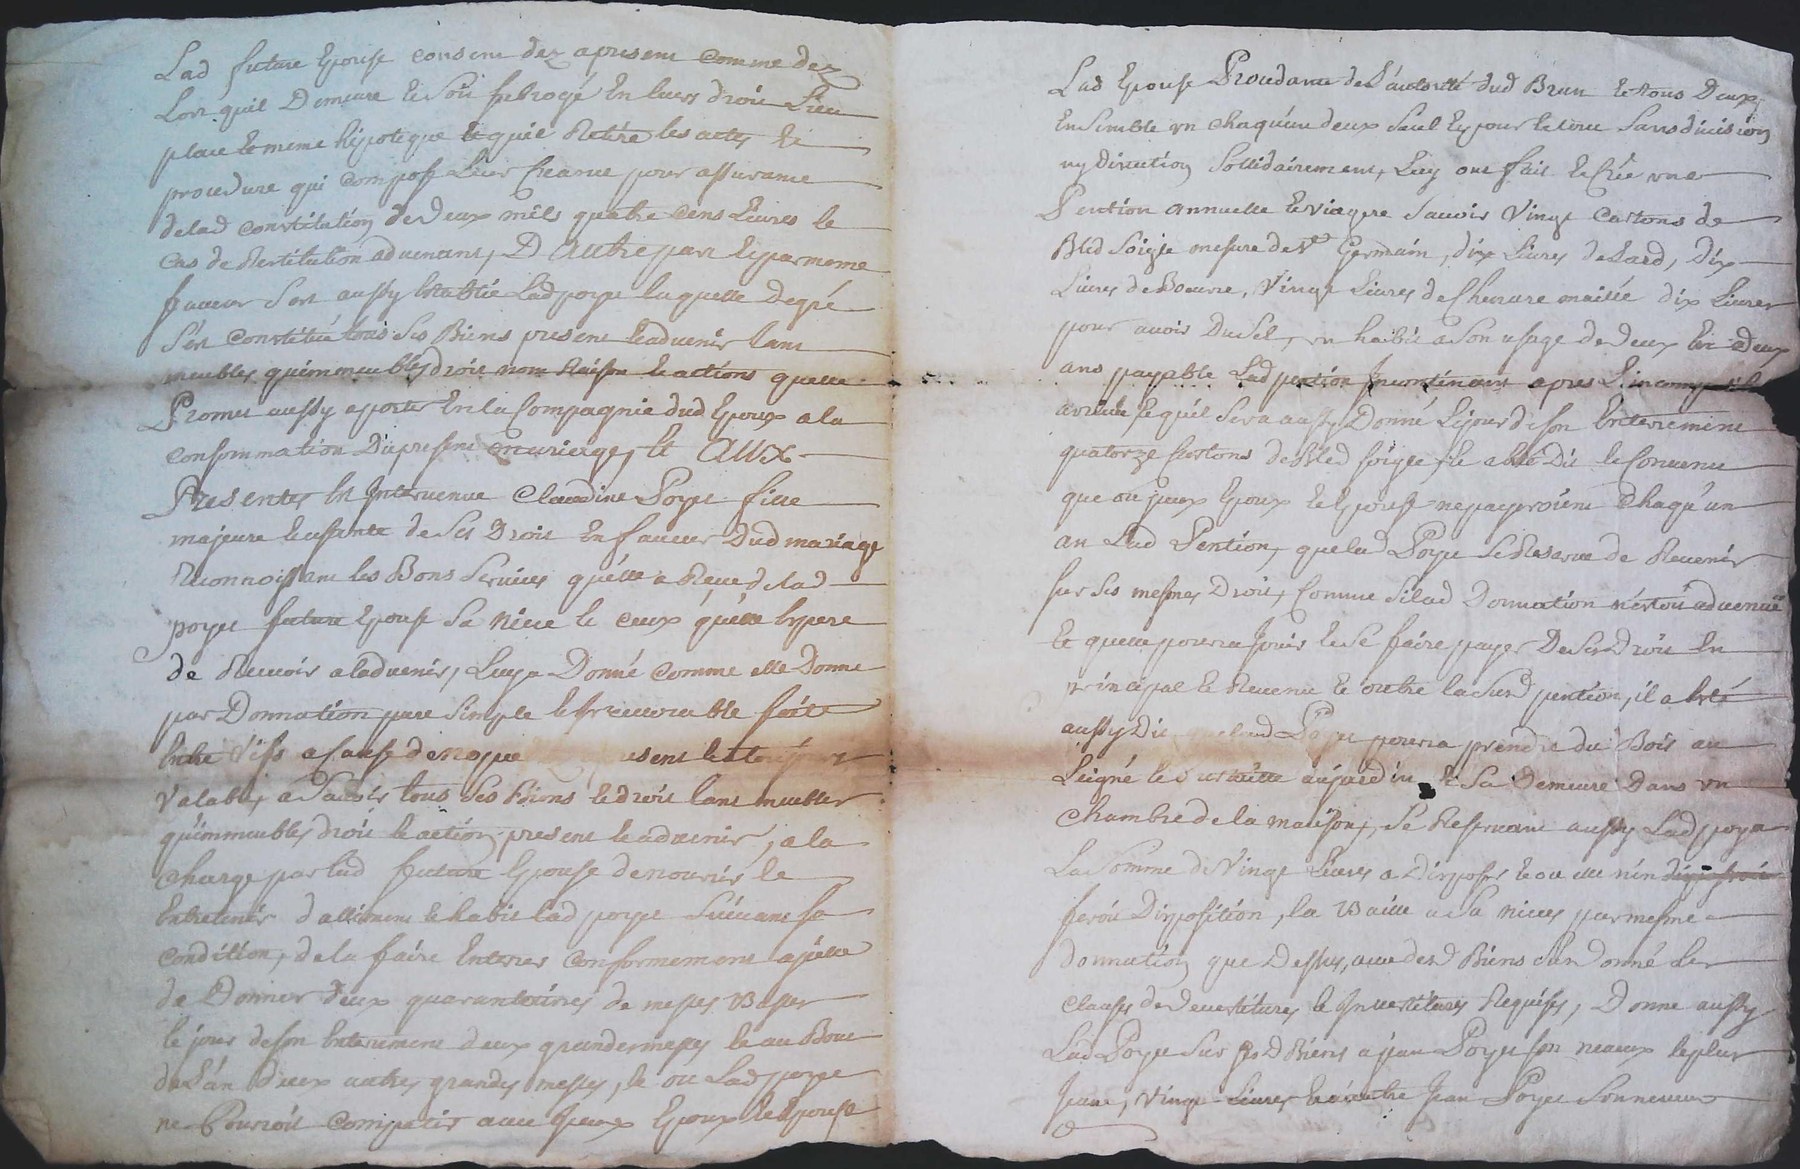 Lad future Epouse consent dez apresent comme dez
Lors quil Demeure et Soit subrogé En leurs droit Lieu
place et meme hipoteque et quil Retire les actes et
procedure qui compose Leur Creance pour assurance
delad constitution de Deux mils quatre cens Livres le
cas de Restitution advenant, D Autre part Et par meme
faveur S'en aussy Establie Lad poye laquelle De gré
S'est Constitué tous Ses Biens present et advenir tant
meubles quimmeubles droit nom Raison et actions quelle
Promet aussy aporter En la Compagnie dud Epoux a la
consommation Du present mariage, Et AUX
Presentes Est Intervenue Claudine Poye fille
majeure et usante de Ses Droit En faveur Dud mariage
Reconnoissant les Bons Services qu'elle a Receu de lad
poye future Epouse Sa niece et ceux qu'elle Espere
de Recevoir a ladvenir, Luy a Donné comme elle Donne
par Donnation pure Simple et Irrevocable faite
Entre Vifs a Cause de nopce
valable, a Savoir tous Ses Biens et droit tant meubles
quimmeubles droit et action present et advenir, a la
charge par lad future Epouse de nourir et
Entretenir d'alliment et habit lad poye Suivant sa
condition, de la faire Enterrer Conformement a icelle
de Donner deux quarantaines de messes Basses
le jour de son Enterrement deux grandes messes et au Bout
de L'an Deux autres grandes messes, et ou Lad poye
ne Pourroit compatir avec Iceux Epoux et Epouse
Lad Epouse Procedante de L'autorité dud Brun et tous Deux
Ensemble un chaqu'un deux Seul Et pour le tout Sans division
ny Direction Sollidairement, Luy ont fait et Crée une
Pention annuelle et viagere Savoir Vingt cartons de
Bled Seigle mesure de St Germain, dix Livres de Lard, Dix
Livres de Beurre, Vingt Livres de Chanvre dix Livres
pour avoir Du Sel, un habit a Son usage de Deux En Deux
ans payable Lad pention Incontinant apres L'incompatibilité
arrivée et qu'il Sera aussy Donné Le jour de Son Enterrement
quatorze Cartons de Bled seigle, et a été Dit et Convenu
que ou Iceux Epoux et Epouse ne payeroient Chaqu'un
an Lad Pention, que lad Poye Se Reserve de Revenir
sur Ses mesmes Droit, Comme Si lad Donnation n'estoit advenue
Et quelle pourra Jouir et Se faire payer De Ses Droit En
principal Et Revenu Et outre la Susd pention, il a été
aussy Dit que lad Poye pourra prendre du Bois au
Leigné et Sa Demeure Dans un
Chambre de la maison, Se Reservant aussy Lad poye
La Somme de Vingt Livres a Disposer et ou elle n'en
feroit Disposition, la Baille a Sa niece par mesme
donnation que Dessus, avec desd Biens Susd Donné Les
clauses de Devestitures et Investitures Requises, Donne aussy
Lad Poye Sur Sesd Biens a jean Poye Son neveux le plus
Jeune, Vingt Livres et a autre Jean Poye Son neveux